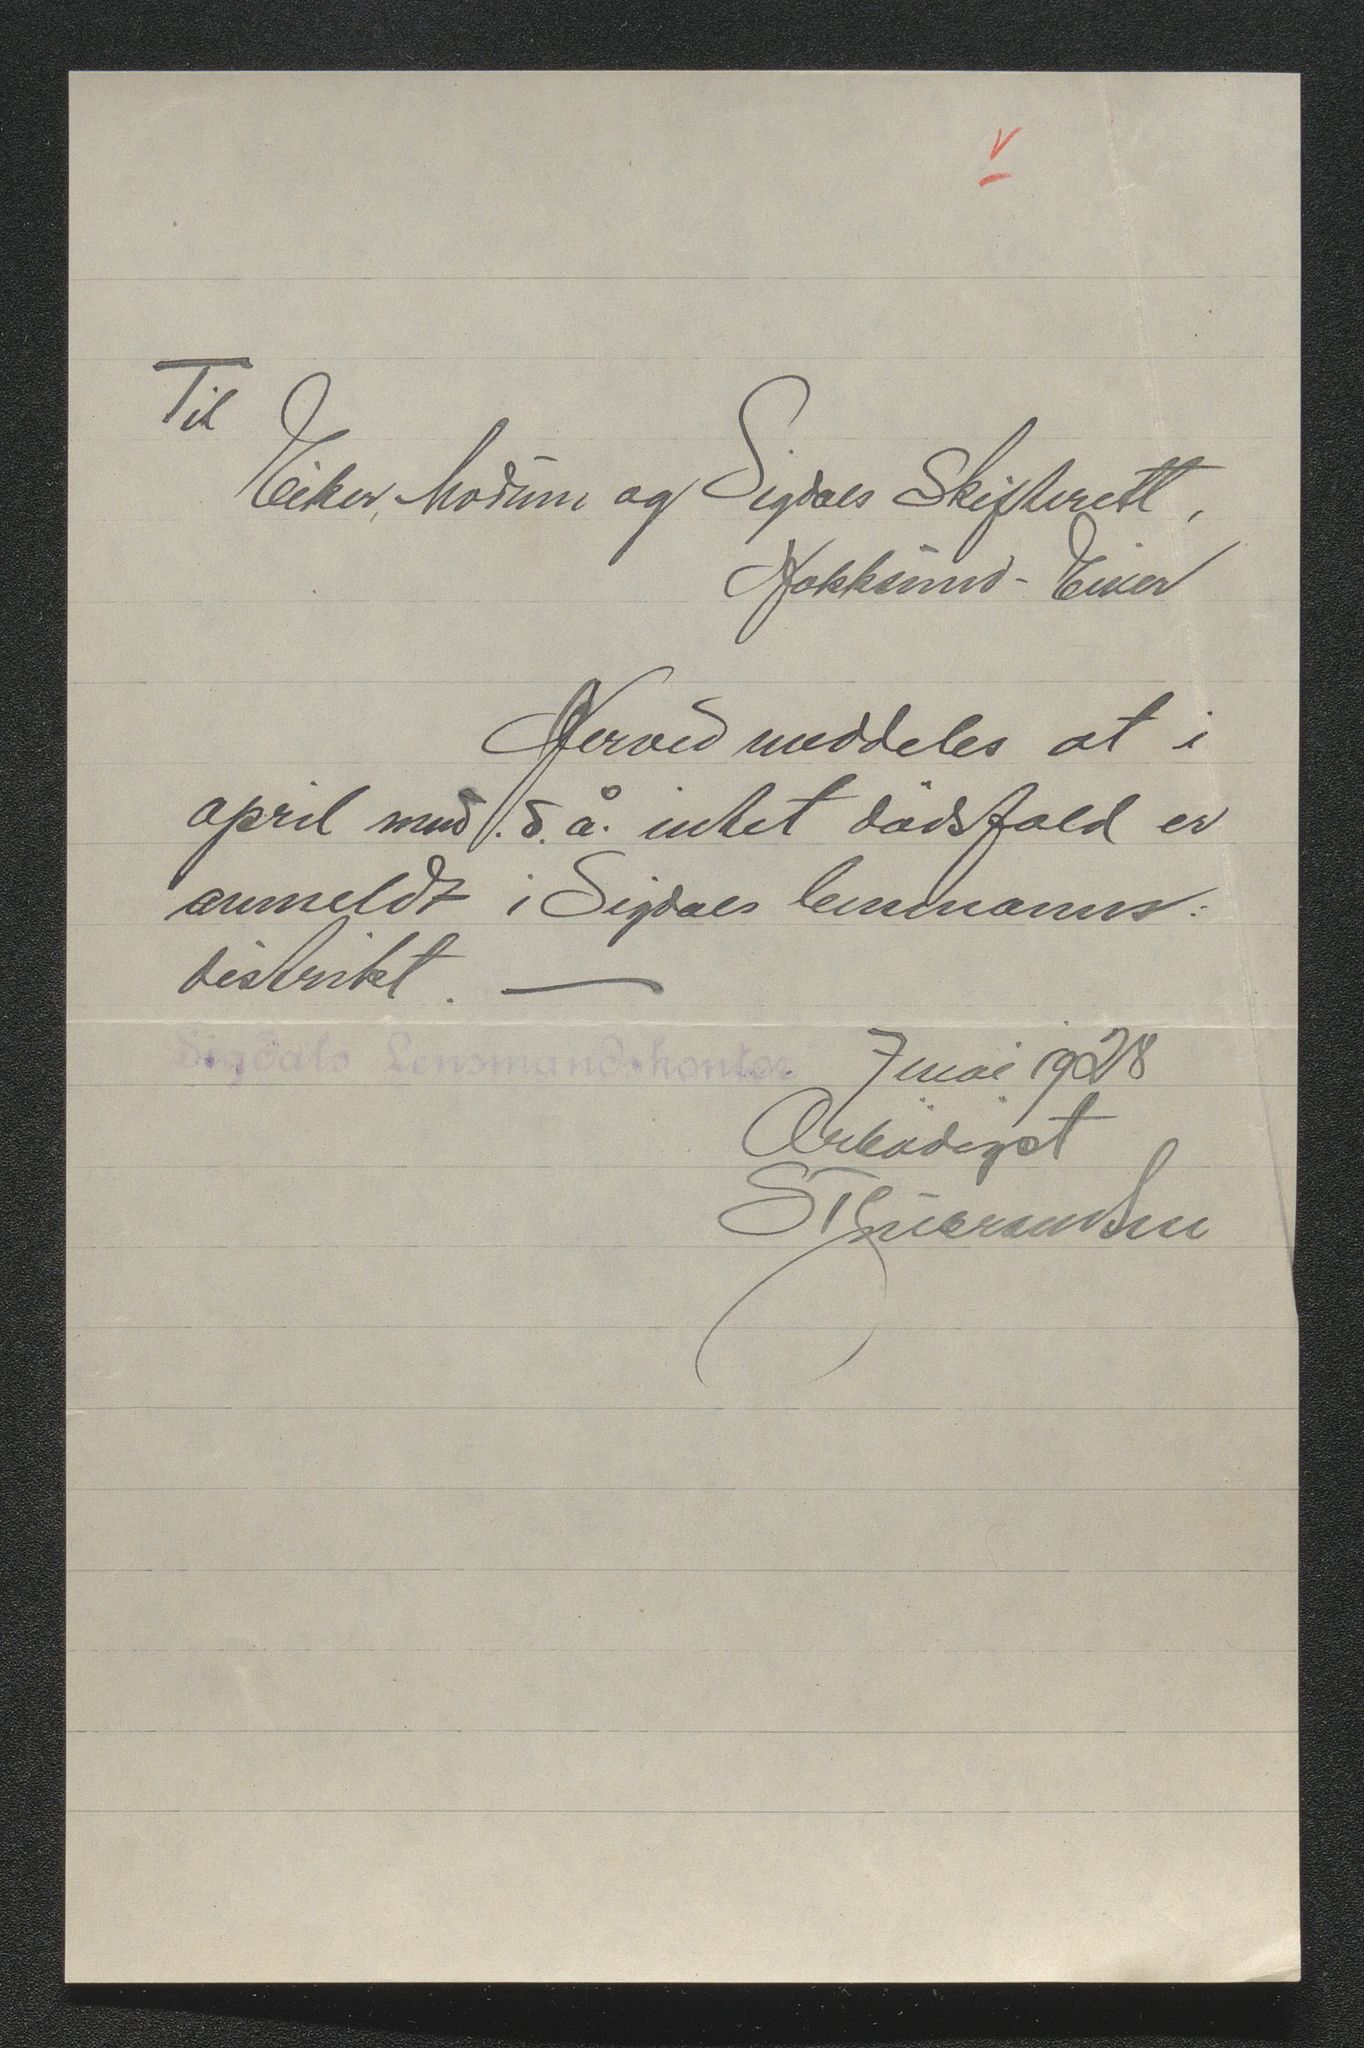 V
Til
Eiker, Modum og Sigdals Skifterett,
Hokksund - Eiker
Herved meddeles at i
april mnd. d. å. intet dödsfald er
anmeldt i Sigdals lensmanns:
distrikt. —
Sigdals Lensmandskontor 7 mai 1928
Ærbödigst